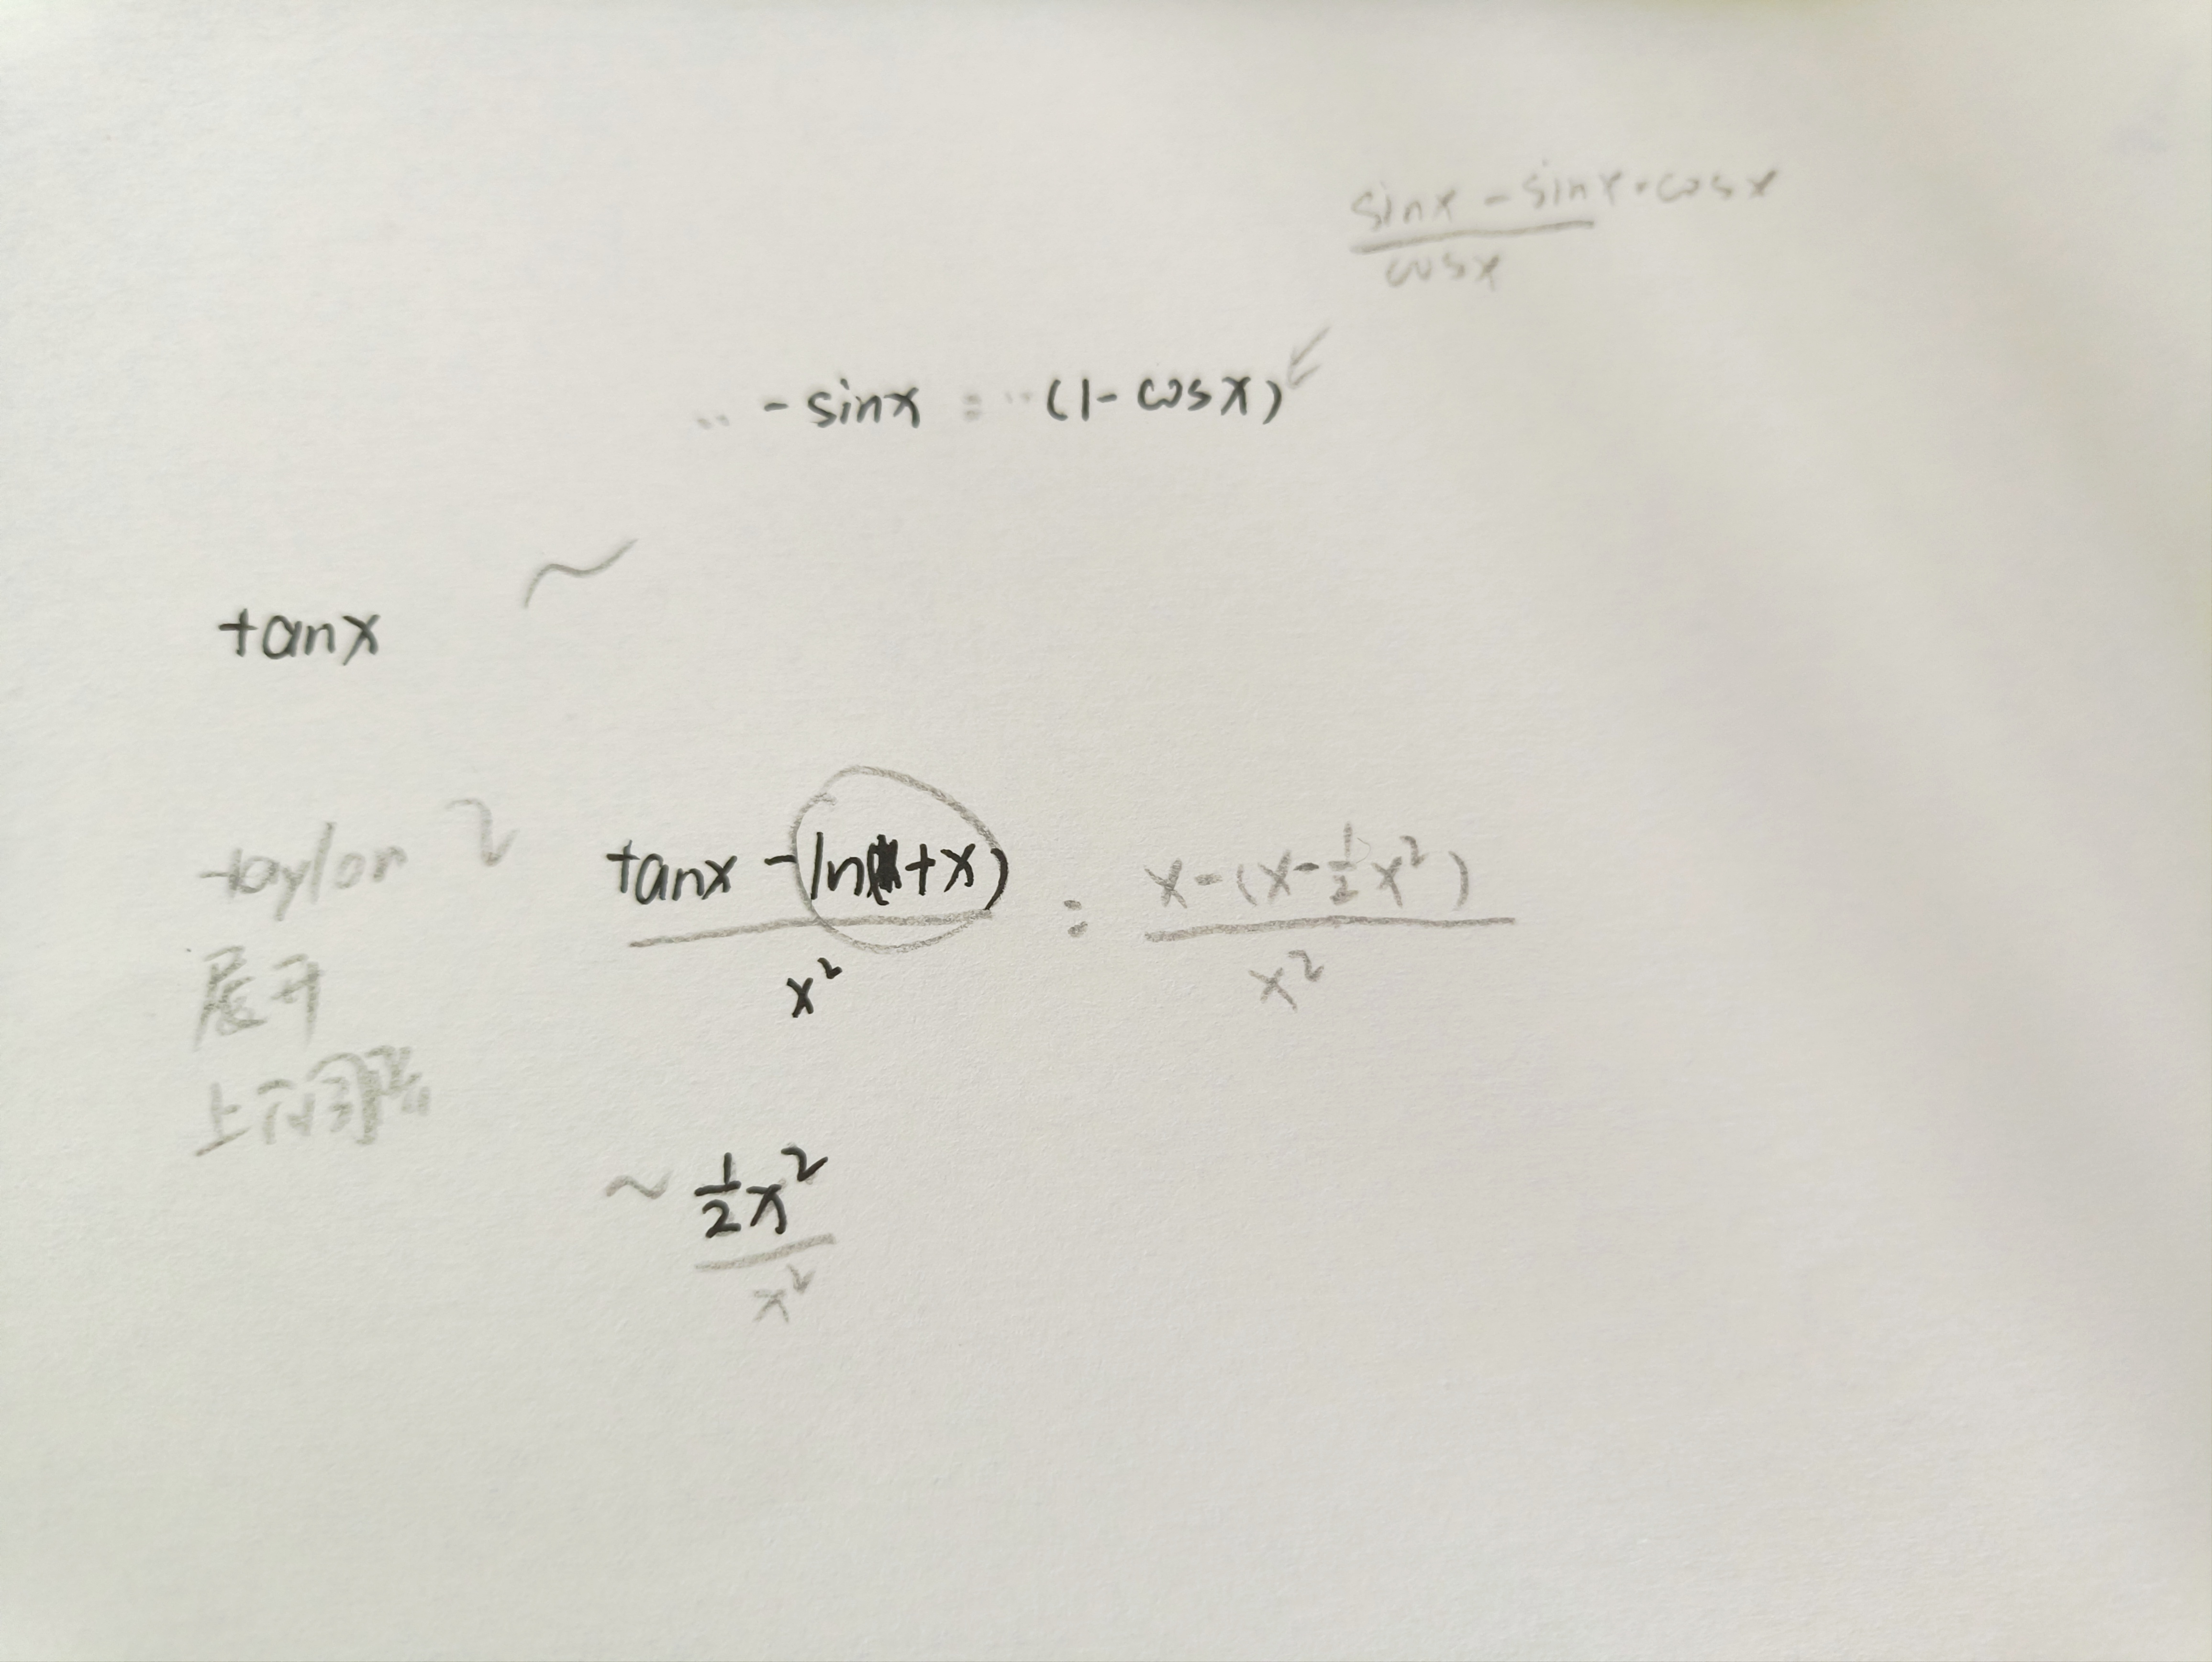 sinx - sinx·cosx
cosx
.. -sinx = ..(1-cosx)
tanx ~
taylor
展开
上下同阶
tanx - ln( +x) = x-(x-½x²)
x² x²
~ ½x²
x²